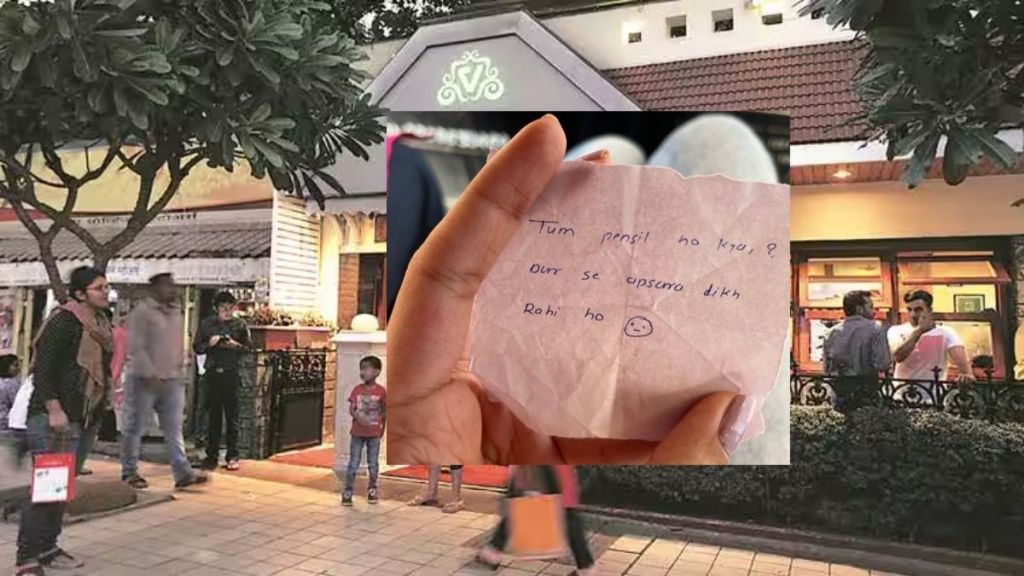 V
Tum pensil ho kya, ?
Durr se apsara dikh
Rahi ho